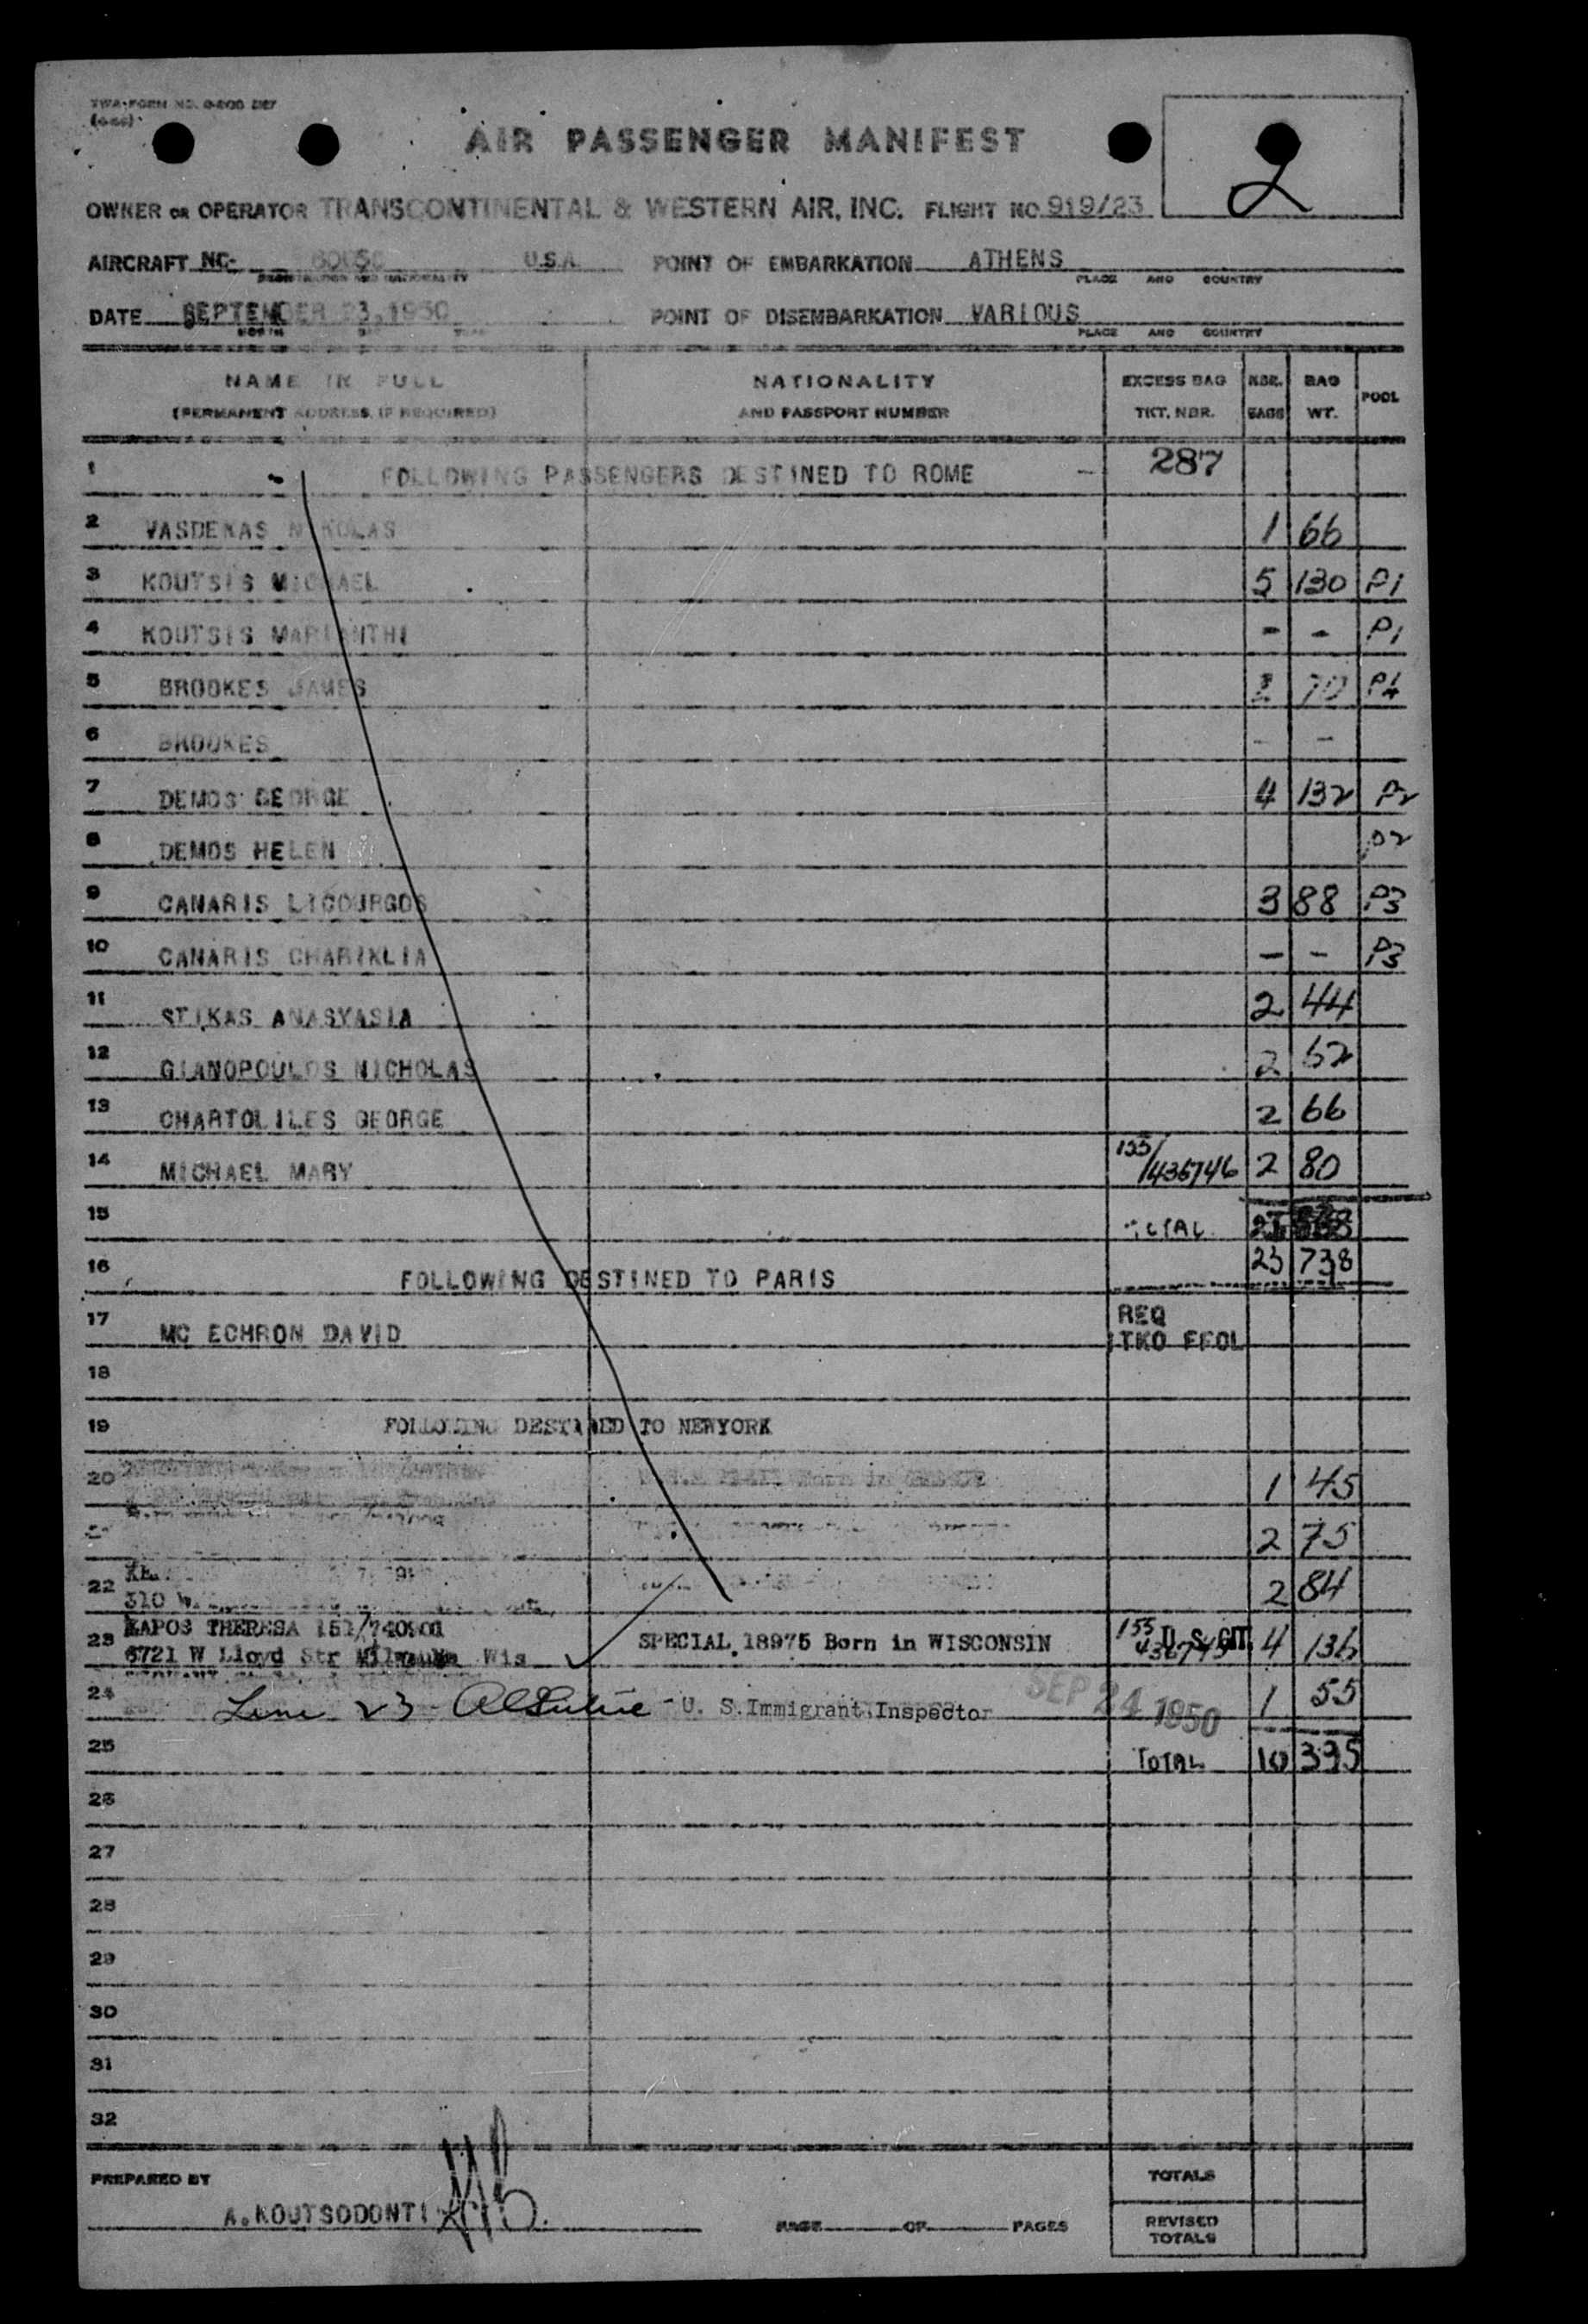 TWA-FORM NO.
AIR PASSENGER MANIFEST
2
OWNER OR OPERATOR TRANSCONTINENTAL & WESTERN AIR, INC. FLIGHT NO 919/23
AIRCRAFT NC- U.S.A. POINT OF EMBARKATION ATHENS
REGISTRATION AND NATIONALITY PLACE AND COUNTRY
DATE SEPTEMBER 23, 1950 POINT OF DISEMBARKATION VARIOUS
MONTH PLACE AND COUNTRY
NAME IN FULL NATIONALITY EXCESS BAG NBR. BAG POOL
(PERMANENT ADDRESS, IF REQUIRED) AND PASSPORT NUMBER TKT. NBR. BAGS WT.
1 FOLLOWING PASSENGERS DESTINED TO ROME - 287
2 VASDEKAS NIKOLAS 1 66
3 KOUTSIS MICHAEL 5 130 P1
4 KOUTSIS MARIANTHI - - P1
5 BROOKES JAMES 2 70 P4
6 BROOKES - -
7 DEMOS GEORGE 4 132 P2
8 DEMOS HELEN P2
9 CANARIS LICOURGOS 3 88 P3
10 CANARIS CHARIKLIA - - P3
11 STIKAS ANASYASIA 2 44
12 GIANOPOULOS NICHOLAS 2 62
13 CHARTOLILES GEORGE 2 66
14 MICHAEL MARY 155/436746 2 80
15 TOTAL
16 FOLLOWING DESTINED TO PARIS 23 738
17 MC ECHRON DAVID REQ
TKO FFOL
18
19 FOLLOWING DESTINED TO NEWYORK
20 Born in GREECE 1 45
2 75
22 310 W. 2 84
KAPOS THERESA 151/740901
23 6721 W Lloyd Str Milwauke Wis SPECIAL 18975 Born in WISCONSIN 155 436745 U. S. CIT. 4 136
24 Line 23 - U. S. Immigrant Inspector SEP 24 1950 1 55
25 TOTAL 10 395
26
27
28
29
30
31
32
PREPARED BY TOTALS
A. KOUTSODONTI PAGE OF PAGES REVISED
TOTALS